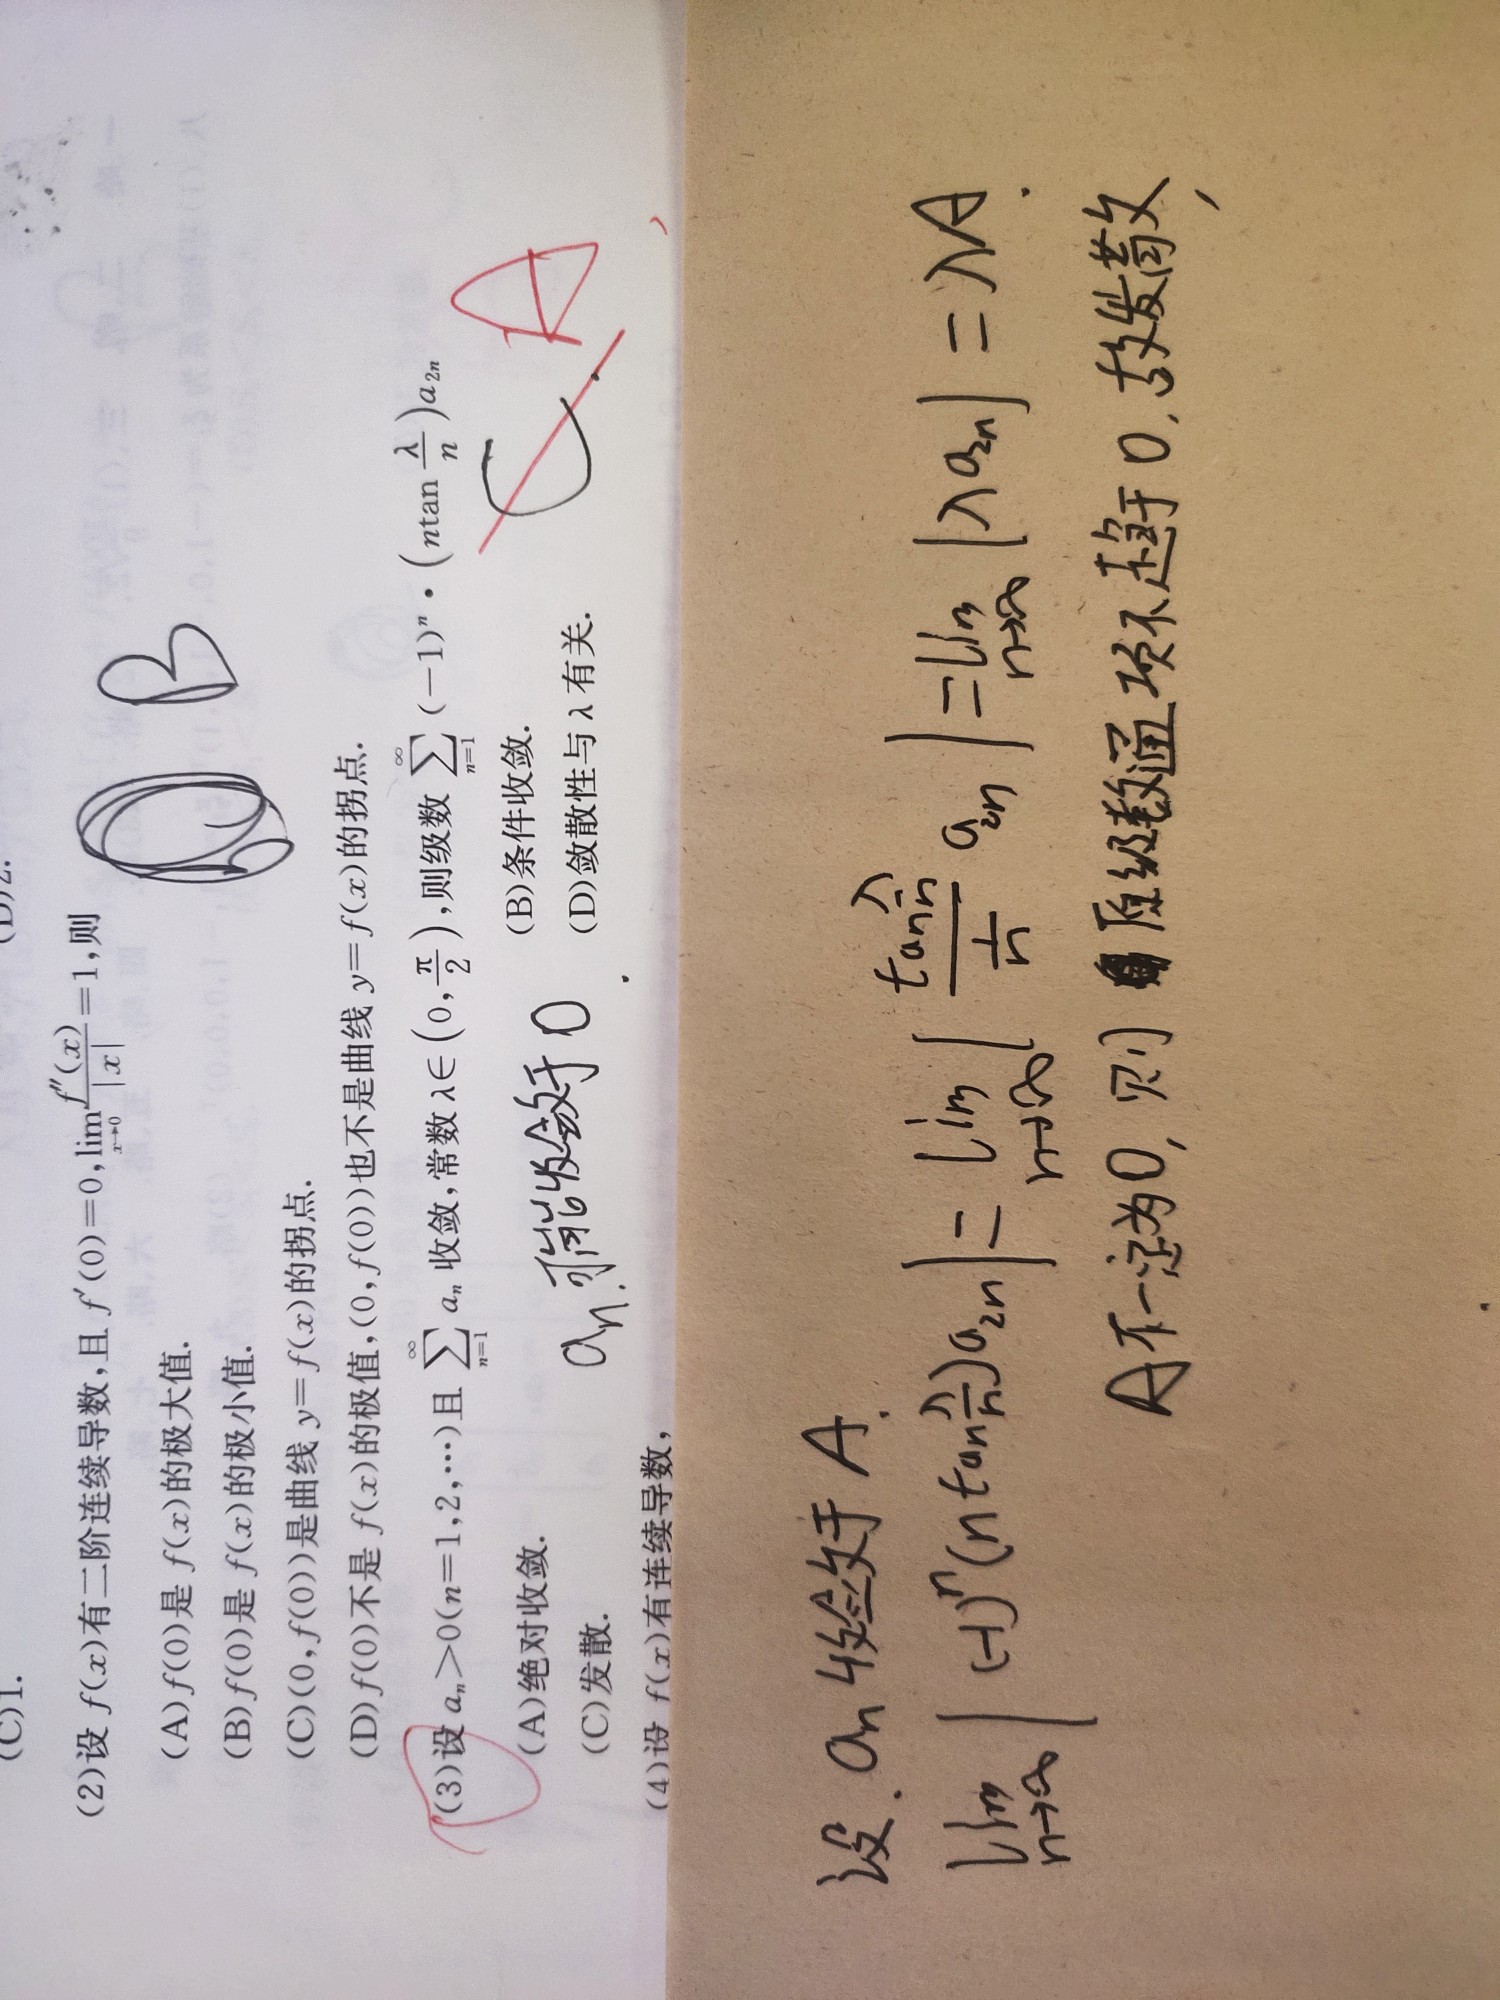 (C)1.
(D)2.
(2)设 f(x)有二阶连续导数,且 f′(0)=0,lim x→0 f″(x)/|x|=1,则
B
(A)f(0)是 f(x)的极大值.
(B)f(0)是 f(x)的极小值.
(C)(0,f(0))是曲线 y=f(x)的拐点.
(D)f(0)不是 f(x)的极值,(0,f(0))也不是曲线 y=f(x)的拐点.
(3)设 aₙ>0(n=1,2,⋯)且 ∑_{n=1}^{∞} aₙ 收敛,常数 λ∈(0,π/2),则级数 ∑_{n=1}^{∞} (−1)ⁿ·(ntan λ/n)a₂ₙ
(A)绝对收敛. (B)条件收敛.
(C)发散. (D)敛散性与 λ 有关.
C. A
收敛于 0
(4)设 f(x)有连续导数,
设. aₙ 收敛于 A.
lim n→∞ |(-1)ⁿ(n tan λ/n)a₂ₙ| = lim n→∞ | tan λ/n / 1/n a₂ₙ | = lim n→∞ |λ a₂ₙ| = λA.
A不一定为0, 则 原级数通项不趋于0, 故发散,